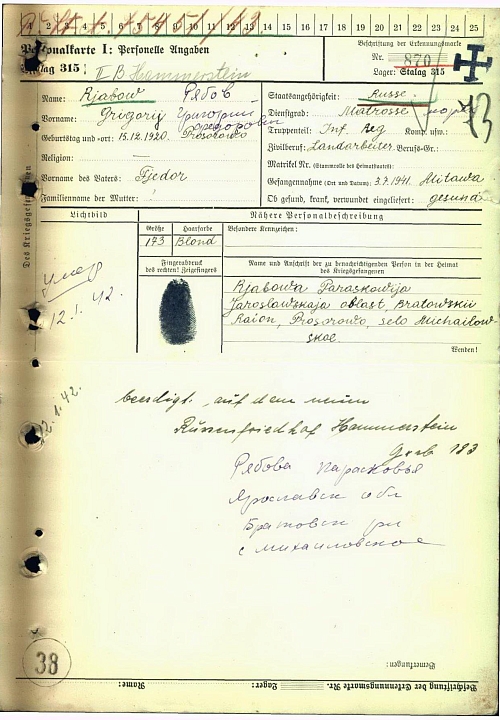 2 3 4 5 6 7 8 9 10 11 12 13 14 15 16 17 18 19 20 21 22 23 24 25
Personalkarte I: Personelle Angaben
Stalag 315 II B Hammerstein
Beschriftung der Erkennungsmarke
Nr. 870
Lager: Stalag 315
Name: Rjabow Рябов
Vorname: Grigorij Григорий Федорович
Geburtstag und -ort: 15.12.1920. Prosorowo
Religion: —
Vorname des Vaters: Fjedor
Familienname der Mutter:
Staatsangehörigkeit: Russe.
Dienstgrad: Matrosse
Truppenteil: Inf. Reg Komp. usw.:
Zivilberuf: Landarbeiter. Berufs-Gr.:
Matrikel Nr. (Stammrolle des Heimatstaates):
Gefangennahme (Ort und Datum): 3.7.1941. Alitawa
Ob gesund, krank, verwundet eingeliefert: gesund
Des Kriegsgefangenen
Lichtbild
Nähere Personalbeschreibung
Größe Haarfarbe Besondere Kennzeichen:
173 Blond
Fingerabdruck
des rechten! Zeigefingers
Name und Anschrift der zu benachrichtigenden Person in der Heimat
des Kriegsgefangenen
Rjabowa Paraskowija
Jaroslawskaja oblast, Bratowskii
Raion, Prosorowo, selo Michailow-
skoe.
Wenden!
умер
12.1.42.
12.1.42.
beerdigt auf dem neuen
Russenfriedhof Hammerstein
Grab 183
Рябова Парасковья
Ярославск обл
Братовск рн
с Михайловское
38
Bemerkungen:
Beschriftung der Erkennungsmarke Nr. Lager: Name: